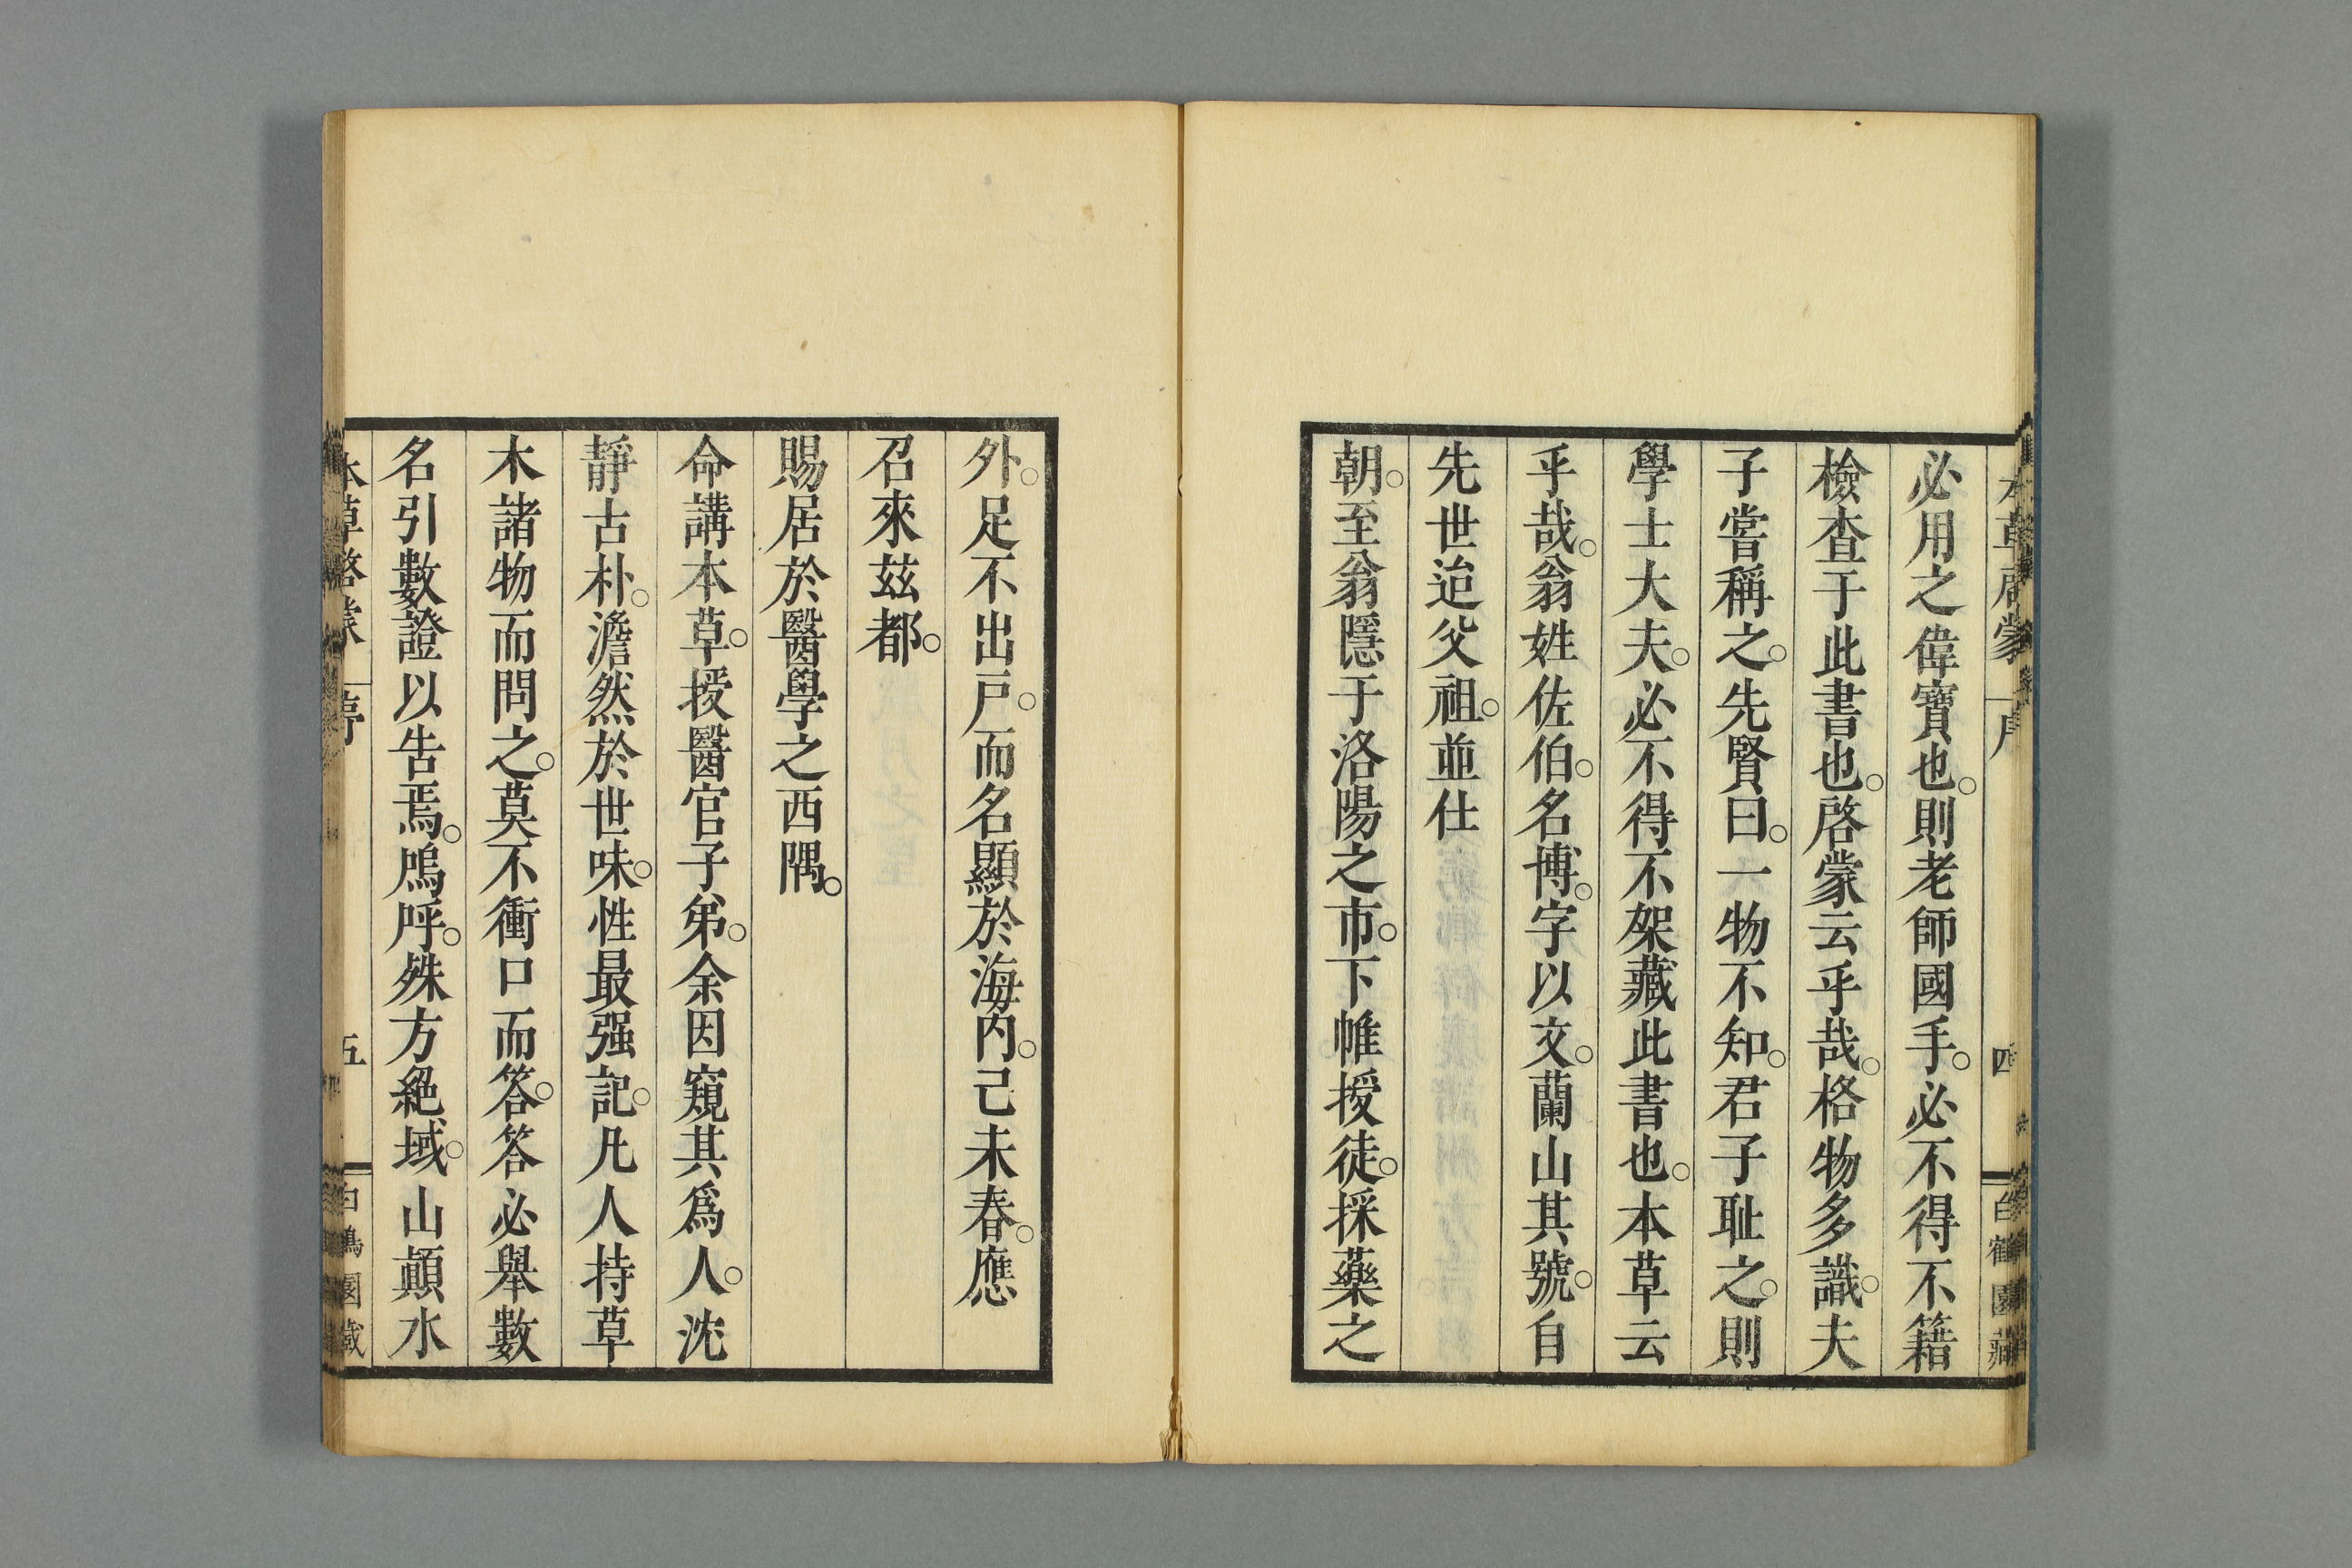 必用之偉寶也。則老師國手。必不得不籍
檢查于此書也。啓蒙云乎哉。格物多識夫
子嘗稱之。先賢曰。一物不知。君子耻之。則
學士大夫。必不得不架藏此書也。本草云
乎哉。翁姓佐伯。名博。字以文。蘭山其號。自
先世迨父祖。並仕
朝。至翁隱于洛陽之市。下帷授徒。採藥之
外。足不出戸。而名顯於海内。己未春。應
召來茲都。
賜居於醫學之西隅。
命講本草。授醫官子弟。余因窺其爲人。沈
靜古朴。澹然於世味。性最强記。凡人持草
木諸物而問之。莫不衝口而答。答必舉數
名引數證以告焉。嗚呼。殊方絕域。山顚水